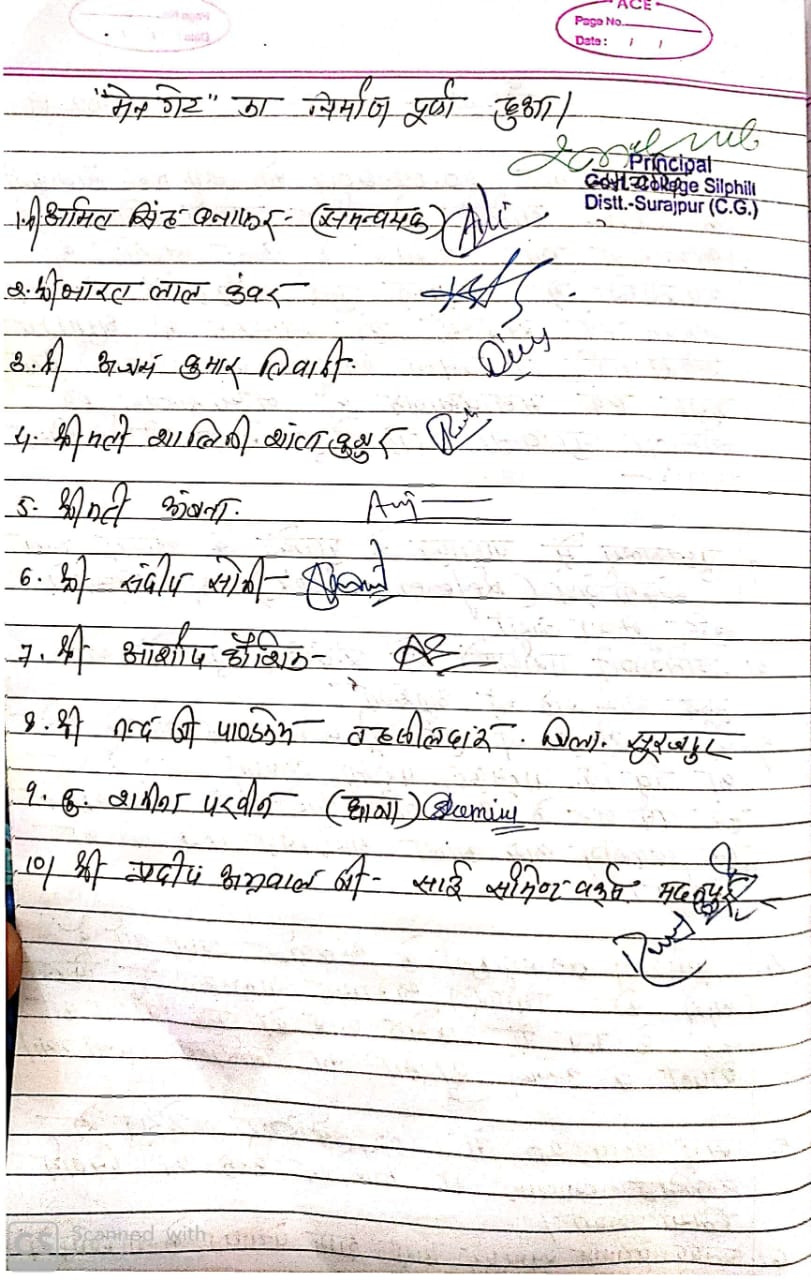 ACE
Page No.
Date: / /
"मेन गेट" का निर्माण पूर्ण हुआ।
Principal
Govt. College Silphili
Distt.-Surajpur (C.G.)
1. श्री अमित सिंह बनाफर - (समन्वयक)
2. श्री भारत लाल कंवर
3. श्री अजय कुमार तिवारी.
4. श्रीमती शालिनी शांता कुजुर
5. श्रीमती अंजना.
6. श्री संदीप सोनी -
7. श्री आशीष कौशिक -
8. श्री नन्द जी पाण्डेय तहसीलदार. जिला. सूरजपुर
9. कु. शमीना परवीन (छात्रा) Shamina
10/ श्री प्रदीप अग्रवाल जी - साई सीमेण्ट वर्क्स
CS Scanned with